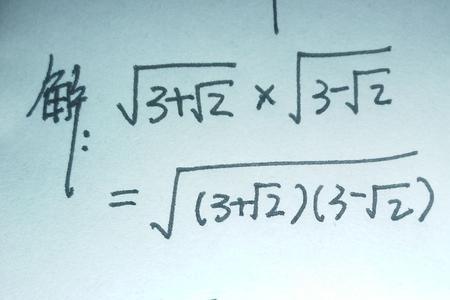 解: √(3+√2) × √(3-√2)
= √((3+√2)(3-√2))